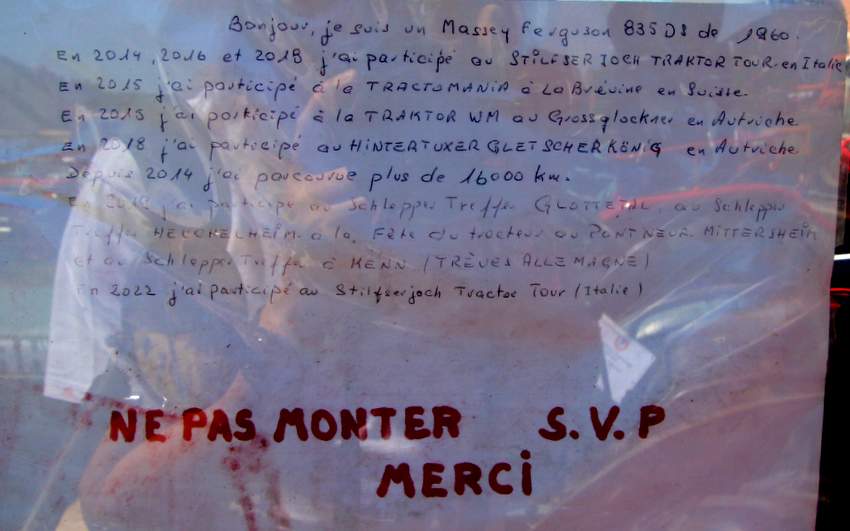 Bonjour, je suis un Massey Ferguson 835 DS de 1960.
En 2014, 2016 et 2018 j'ai participé au STILFSER JOCH TRAKTOR TOUR en Italie
En 2015 j'ai participé à la TRACTOMANIA à La Brévine en Suisse
En 2015 j'ai participé à la TRAKTOR WM au Grossglockner en Autriche
En 2018 j'ai participé au HINTERTUXER GLETSCHERKÖNIG en Autriche
Depuis 2014 j'ai parcourue plus de 16000 km.
En 2019 j'ai participé au Schlepper Treffen GLOTTETAL, au Schlepper
Treffen HEUCHELHEIM à la Fête du tracteur au PONT NEUF MITTERSHEIM
et au Schlepper Treffen à KENN (TRÈVES ALLEMAGNE)
En 2022 j'ai participé au Stilfserjoch Tractor Tour (Italie)
NE PAS MONTER S.V.P
MERCI